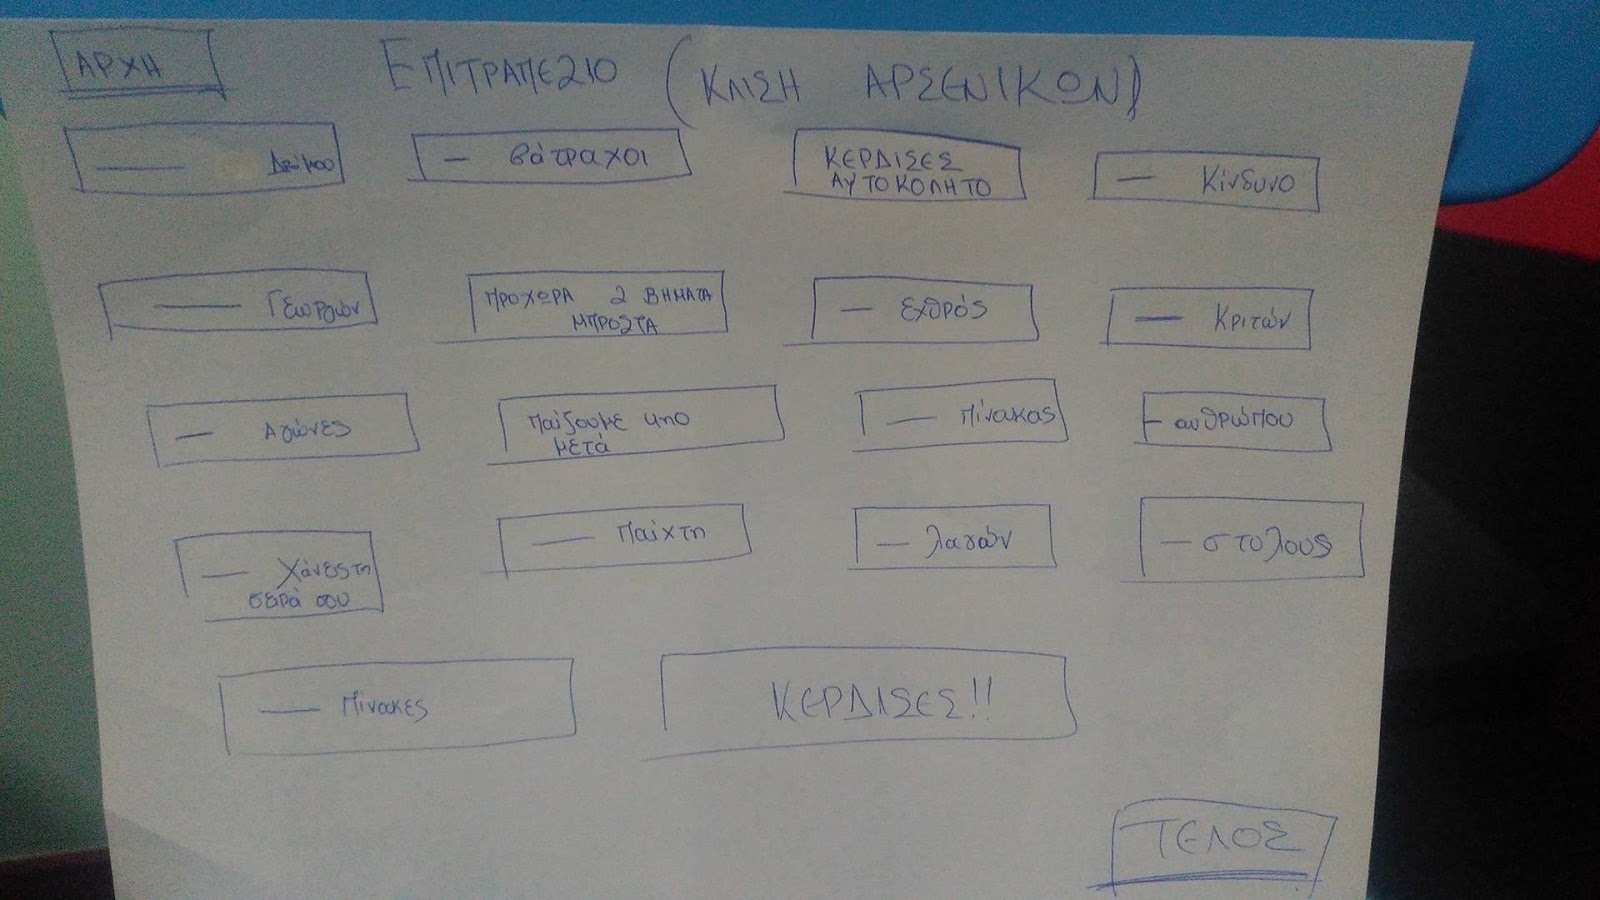 ΑΡΧΗ
ΕΠΙΤΡΑΠΕΖΙΟ (ΚΛΙΣΗ ΑΡΣΕΝΙΚΩΝ)
— Δρόμου
— βάτραχοι
ΚΕΡΔΙΣΕΣ
ΑΥΤΟΚΟΛΗΤΟ
— Κίνδυνο
— Γεωργών
ΠΡΟΧΩΡΑ 2 ΒΗΜΑΤΑ
ΜΠΡΟΣΤΑ
— εχθρός
— Κριτών
— Αγώνες
Παίζουμε
μετά
— Πίνακας
— ανθρώπου
— Χάνεις τη
σειρά σου
— Παίχτη
— λαγών
— στύλους
— Πίνακες
ΚΕΡΔΙΣΕΣ!!
ΤΕΛΟΣ